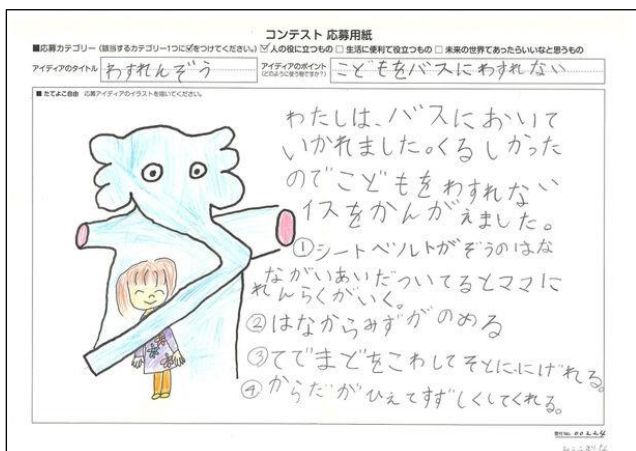 コンテスト 応募用紙
■応募カテゴリー（該当するカテゴリー1つに☑をつけてください。）☑人の役に立つもの □生活に便利で役立つもの □未来の世界であったらいいなと思うもの
アイディアのタイトル わすれんぞう アイディアのポイント（どのように使う物ですか？） こどもをバスにわすれない
■たてよこ自由 応募アイディアのイラストを描いてください。
わたしは、バスにおいて
いかれました。くるしかった
のでこどもをわすれない
イスをかんがえました。
①シートベルトがぞうのはな
ながいあいだついてるとママに
れんらくがいく。
②はなからみずがのめる
③てでまどをこわしてそとににげれる。
④からだがひえてすずしくしてくれる。
受付No. 00224